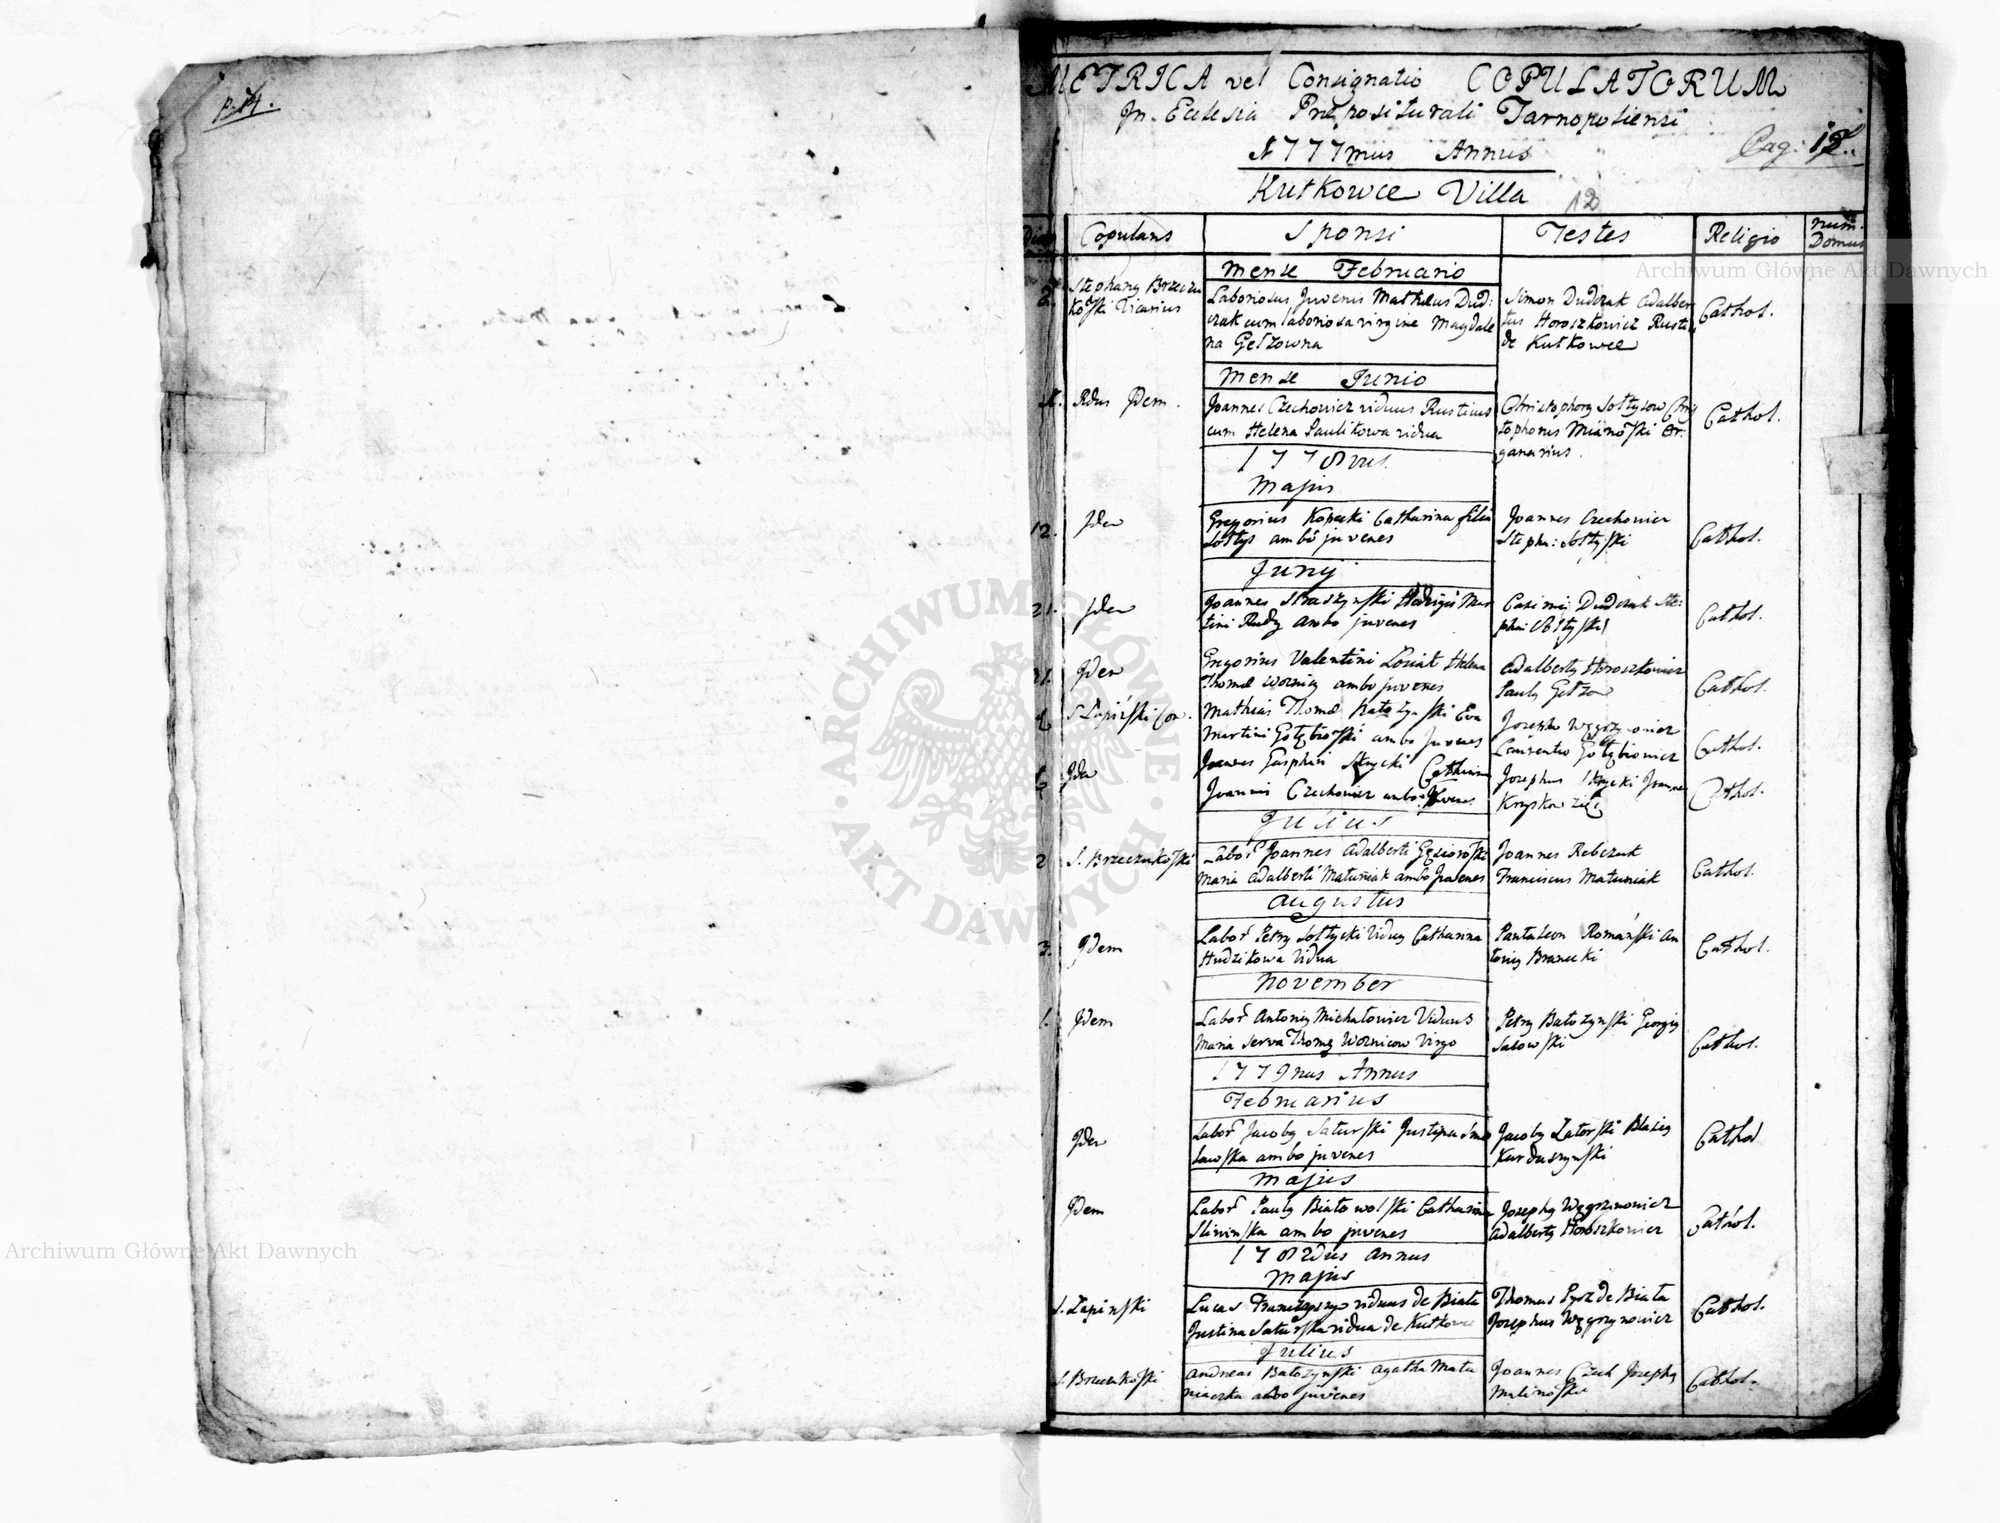 p. 14.
METRICA vel Consignatio COPULATORUM
In Eclesia Præpositurali Tarnopoliensi
1777mus Annus
Pag: 12.
Kutkowce Villa
12
Dies Copulans Sponsi Testes Religio Num: Domus
Mense Februario
2. Stephany Brzeczukoſki Vicarius
Laboriosus Juvenis Matheus Dud:
czak cum laboriosa virgine Magdale
na Gełzowna
Simon Dudczak Adalber
tus Horoszkowicz Rusti
de Kutkowce
Cathol.
Mense Junio
Rdus Idem.
Joannes Czechowicz viduus Rusticus
cum Helena Paulikowa vidua
Christophory Sołtysow Chri
stophorus Mianoſki Or:
ganarius.
Cathol.
1778vus.
Majus
12. Idem
Gregorius Kopecki Catharina filia
Sołtys ambo juvenes
Joannes Czechowicz
Steph: Sołtyſki
Cathol.
Junij
21. Idem
Joannes Straszynſki Hedvigis Mar
tini Rudy ambo juvenes
Casimiy Dudczak Ste:
phan
Cathol.
21. Idem
Gregorius Valentini Losiak Helena
Thomæ Woznicy ambo juvenes
Adalberty Horoszkowicz
Pauly Gełzow
Cathol.
S Łapińſki
Mathias Thomæ Ea
Martini Gołębioſki ambo Juvenes
Josephus Węgrzynowicz
Laurentio Gołębiowicz
Cathol.
Idem
Joannes Gasphari Catharina
Joannis Czechowicz ambo Juvenes
Josephus Joannes
Cathol.
Julius
2 S. Brzeczukoſki
Labor Joannes Adalberti Gęsioroſki
Maria Adalberti Matuniak ambo Juvenes
Joannes Rebczuk
Franciscus Matuniak
Cathol.
Augustus
3. Idem
Labor Petry Sołtycki Viduy Catharina
Hudzikowa Vidua
Pantaleon Romańſki An
toniy Branecki
Cathol.
November
1. Idem
Labor Antoniy Michałowicz Viduus
Maria serva Thomę Woznicow Virgo
Petry Bałozynſki Georgiy
Sałowſki
Cathol.
1779nus Annus
Februarius
Idem
Labor Jacoby Saturſki Justyna
ſka ambo juvenes
Jacoby Zatorſki Blasiy
Karduszynſki
Cathol
Majus
Idem
Labor Pauly Białowolſki Catharina
Sliwinſka ambo juvenes
Josephy Węgrzynowicz
Adalberty Horoszkowicz
Cathol.
1782dus Annus
Majus
S. Łapinſki
Lucas viduus de Biała
Justina Saturſka vidua de Kutkowce
Thomas Pysz de Biała
Josephus Węgrzynowicz
Cathol.
Julius
S. Brzeczukoſki
Andreas Bałozynſki Agatha Matu
niaczka ambo juvenes
Joannes Czech Josephy
Malinoſki
Cathol.
ARCHIWUM GŁÓWNE · AKT DAWNYCH ·
Archiwum Główne Akt Dawnych
Archiwum Główne Akt Dawnych